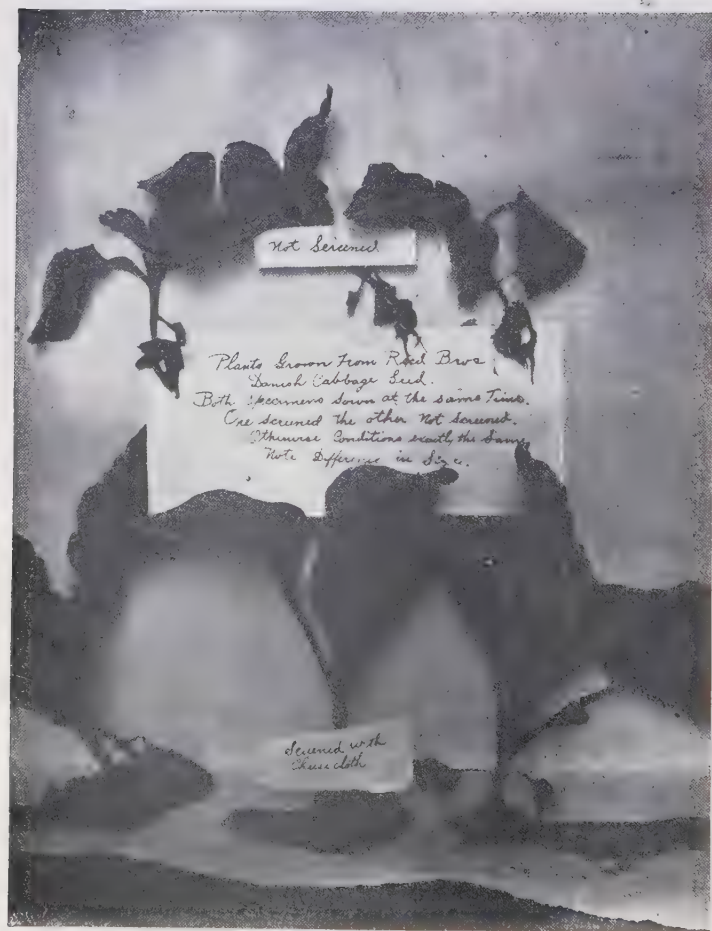 Not Screened
Plants Grown From Reid Bros
Danish Cabbage Seed.
Both Specimens sown at the same Time.
One screened the other Not Screened.
Otherwise Conditions exactly the Same
Note Difference in Size.
Screened with
Cheese cloth